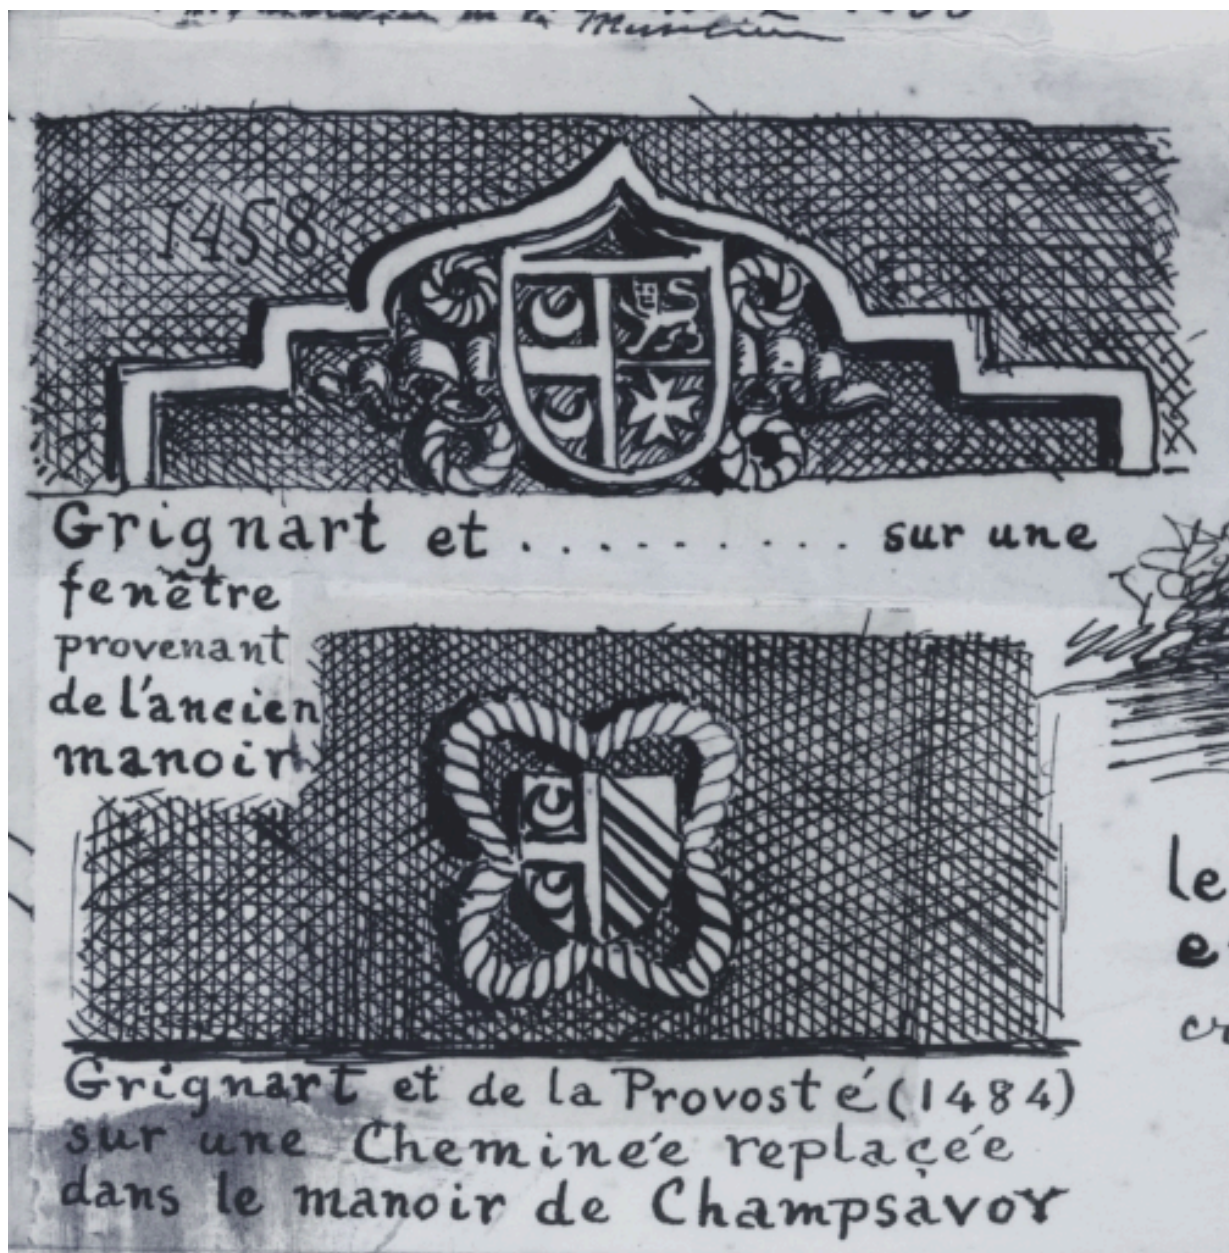 en la
1458
Grignart et .......... sur une
fenêtre
provenant
de l'ancien
manoir
le
e
Grignart et de la Provosté (1484)
sur une Cheminée replaçée
dans le manoir de Champsavoy